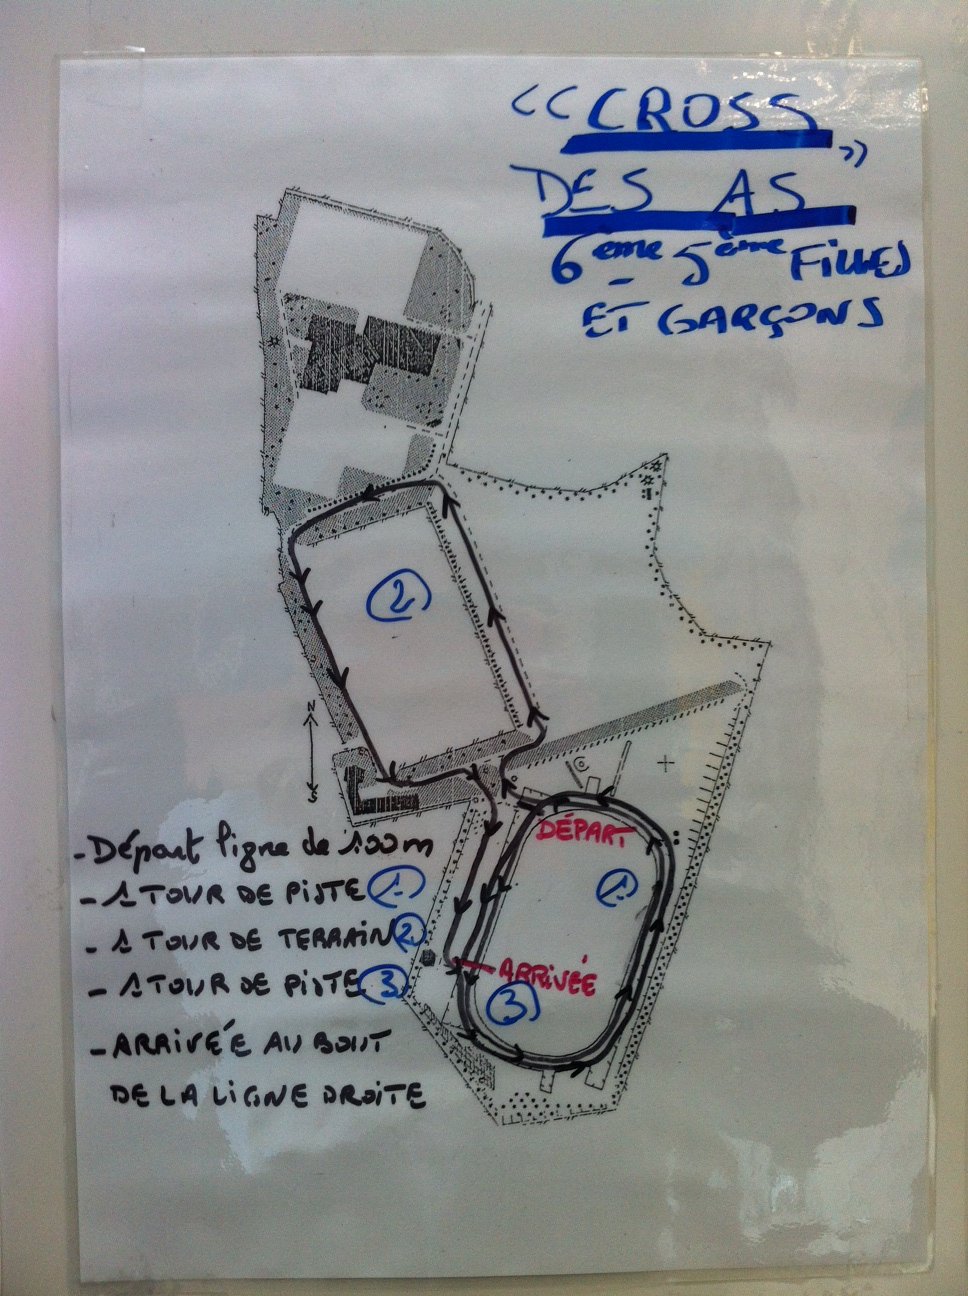 << CROSS
DES AS >>
6ème - 5ème FILLES
ET GARÇONS
2
N
S
C
DÉPART
1
ARRIVÉE
3
- Départ ligne de 100m
- 1 TOUR DE PISTE 1
- 1 TOUR DE TERRAIN 2
- 1 TOUR DE PISTE 3
- ARRIVÉE AU BOUT
DE LA LIGNE DROITE